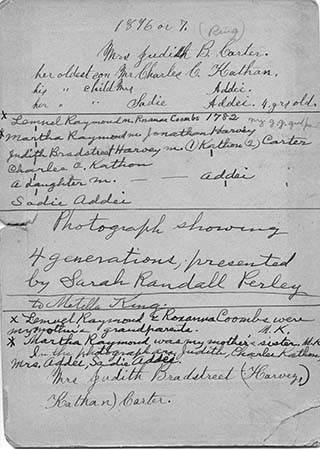 1876 or 7.
(Ring)
Mrs Judith B. Carter.
her oldest son Mr. Charles C. Kathan.
his " child Mrs Addei.
her " " Sadie Addei. 4 yrs old.
x Lemuel Raymond m. Roxanna Coombs 1782 my g.g.
x Martha Raymond m. Jonathan Harvey
Judith Bradstreet Harvey m (1) Kathon (2) Carter
Charles C. Kathon
A daughter m. — — Addei
Sadie Addei
Photograph showing
4 generations, presented
by Sarah Randall Perley
to Metilla King.
x Lemuel Raymond & Roxanna Coombs were
my mother's grandparents. M.K.
x Martha Raymond was my mother's sister M.K.
In the photograph are Judith, Charles Kathon,
Mrs. Addei, Sadie Addei.
Mrs Judith Bradstreet (Harvey,
Kathan) Carter.